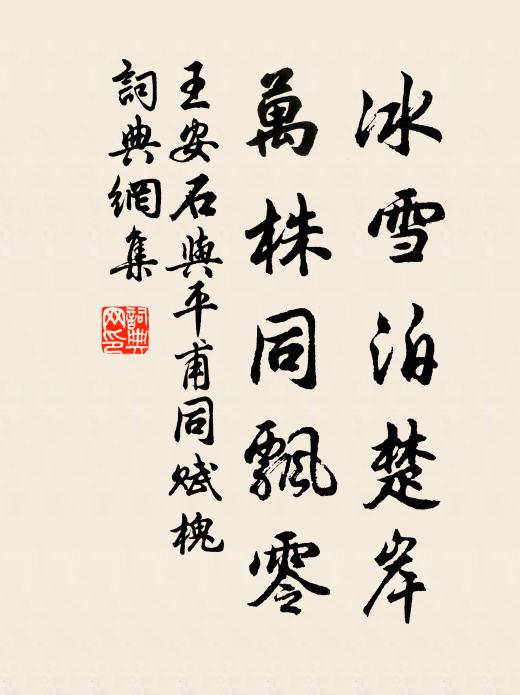 冰雪泊楚岸
萬株同飄零
王安石與平甫同賦槐
詞典網集
詞典网印